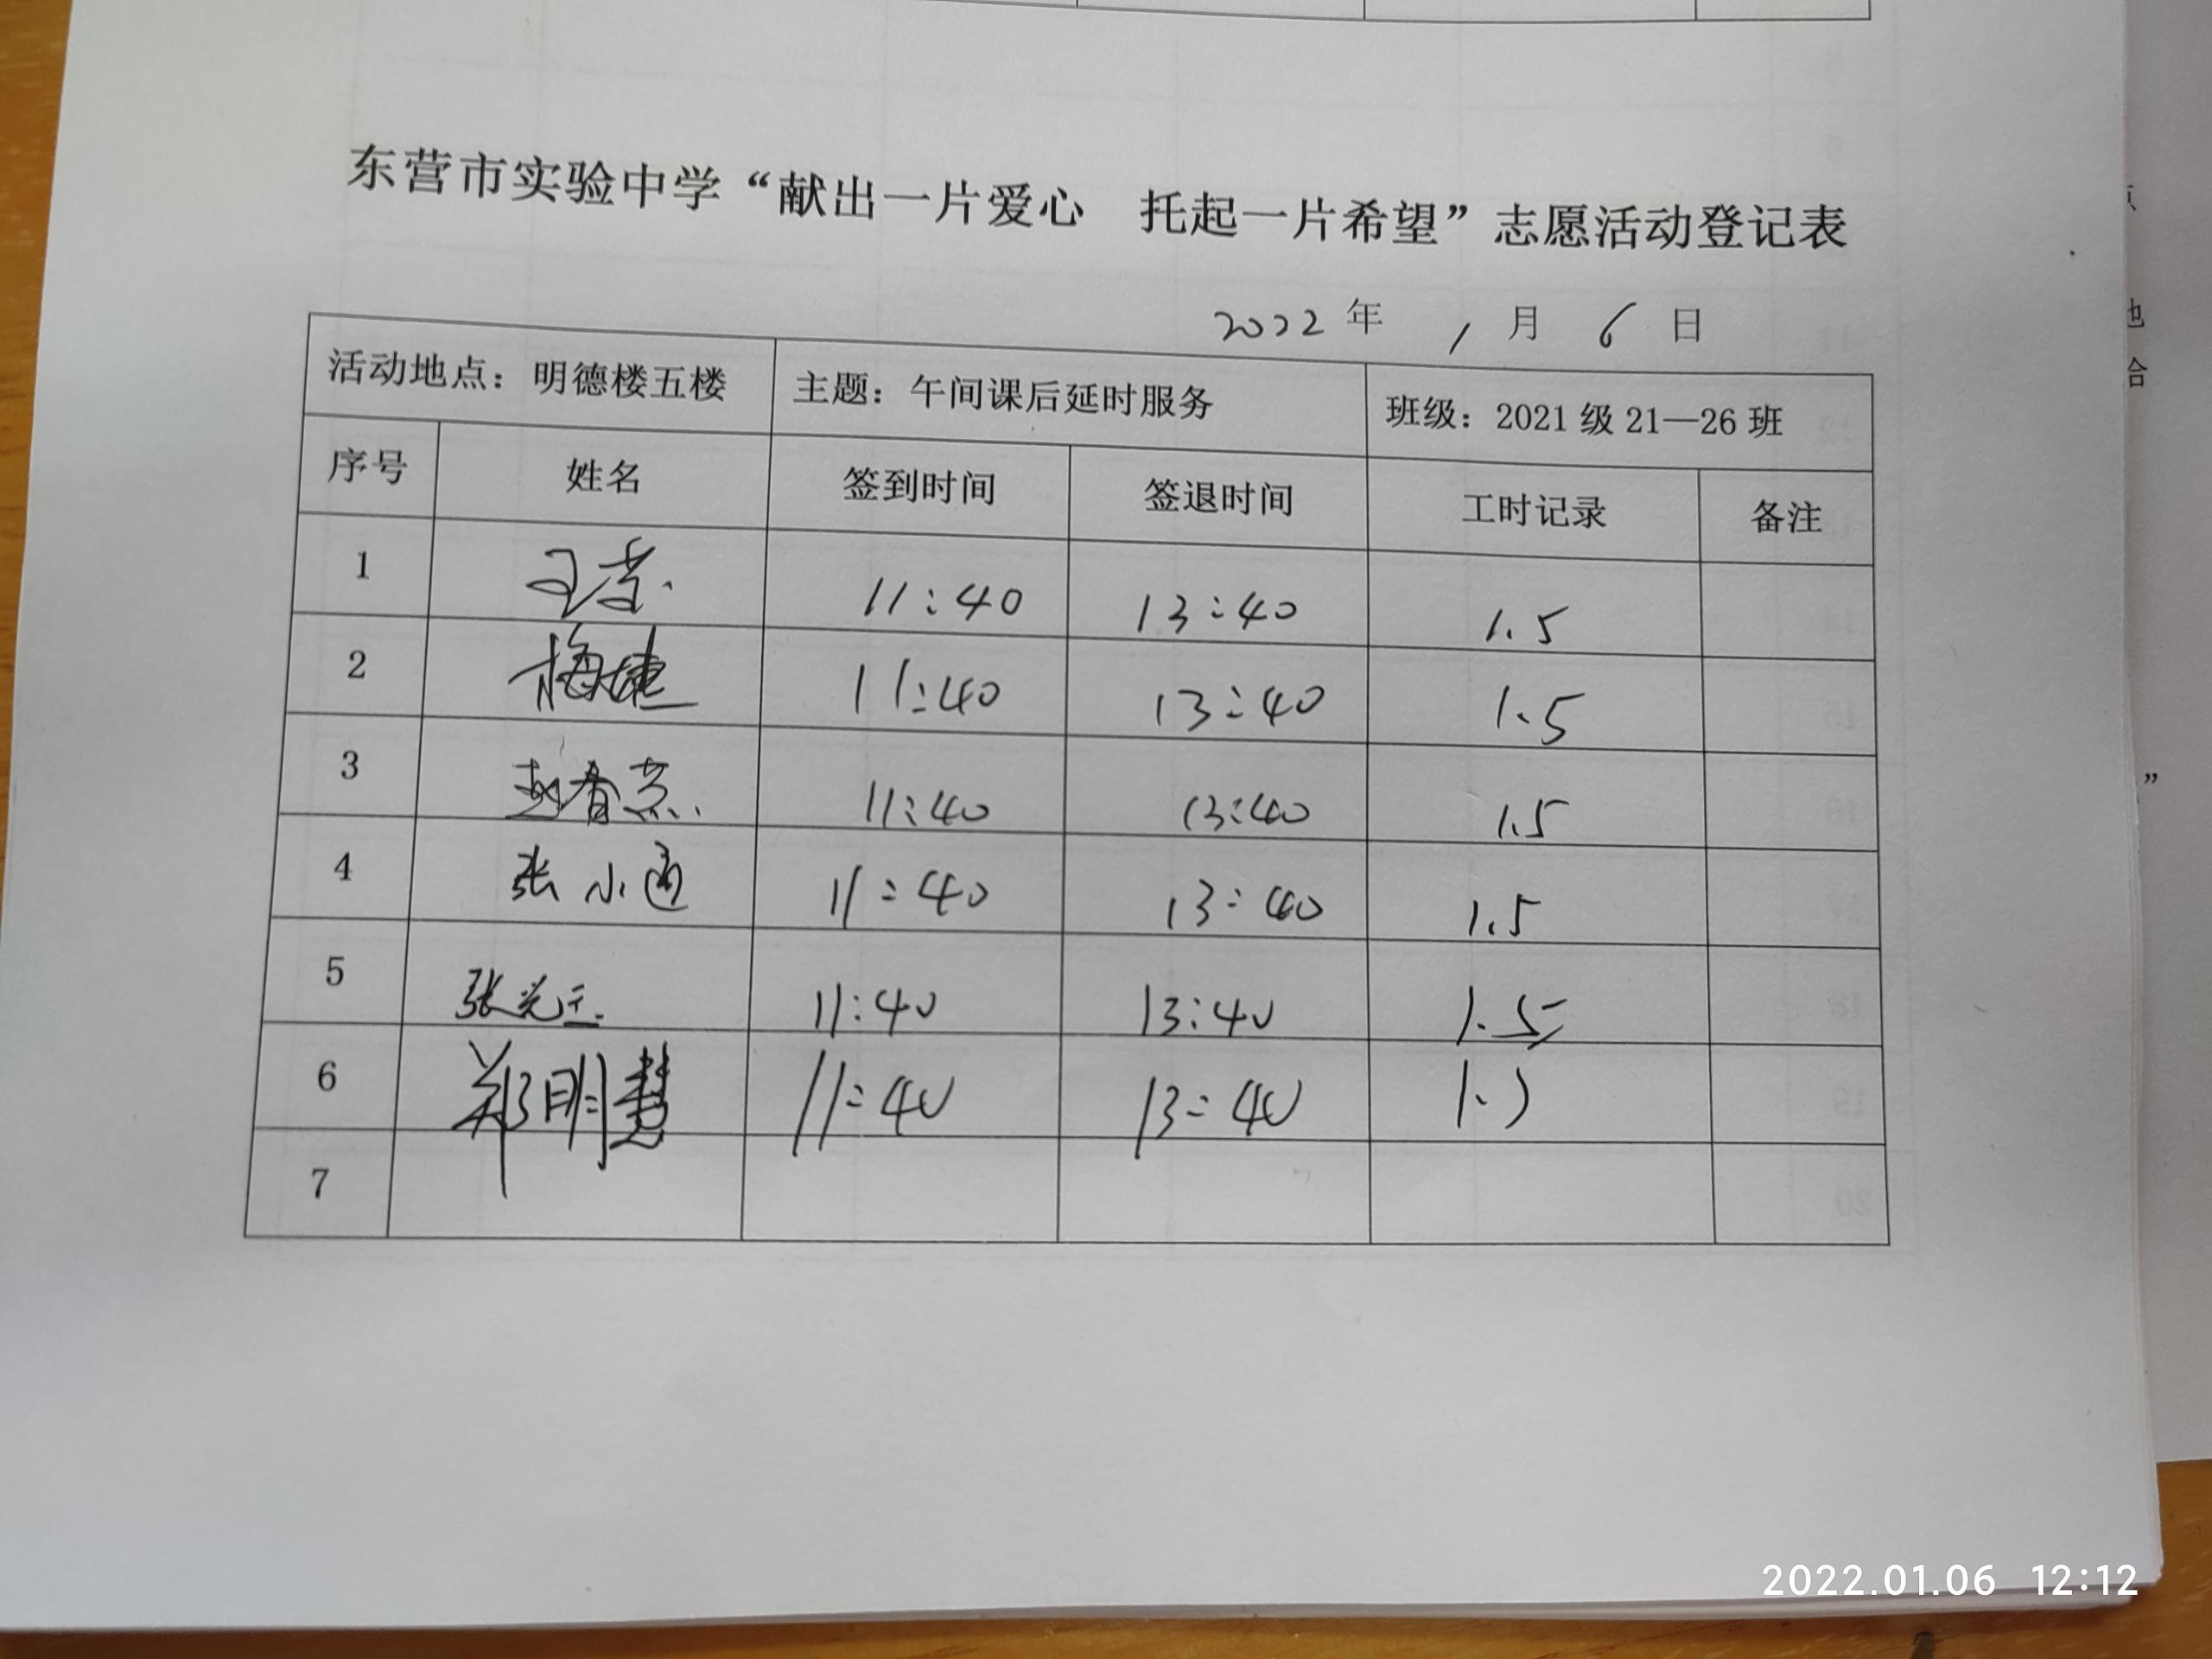 东营市实验中学“献出一片爱心 托起一片希望”志愿活动登记表
2022 年 1 月 6 日
活动地点：明德楼五楼 主题：午间课后延时服务 班级：2021 级 21—26 班
序号 姓名 签到时间 签退时间 工时记录 备注
1 11:40 13:40 1.5
2 梅婕 11:40 13:40 1.5
3 赵春燕 11:40 13:40 1.5
4 张小通 11:40 13:40 1.5
5 张 11:40 13:40 1.5
6 郑明慧 11:40 13:40
7
2022.01.06 12:12